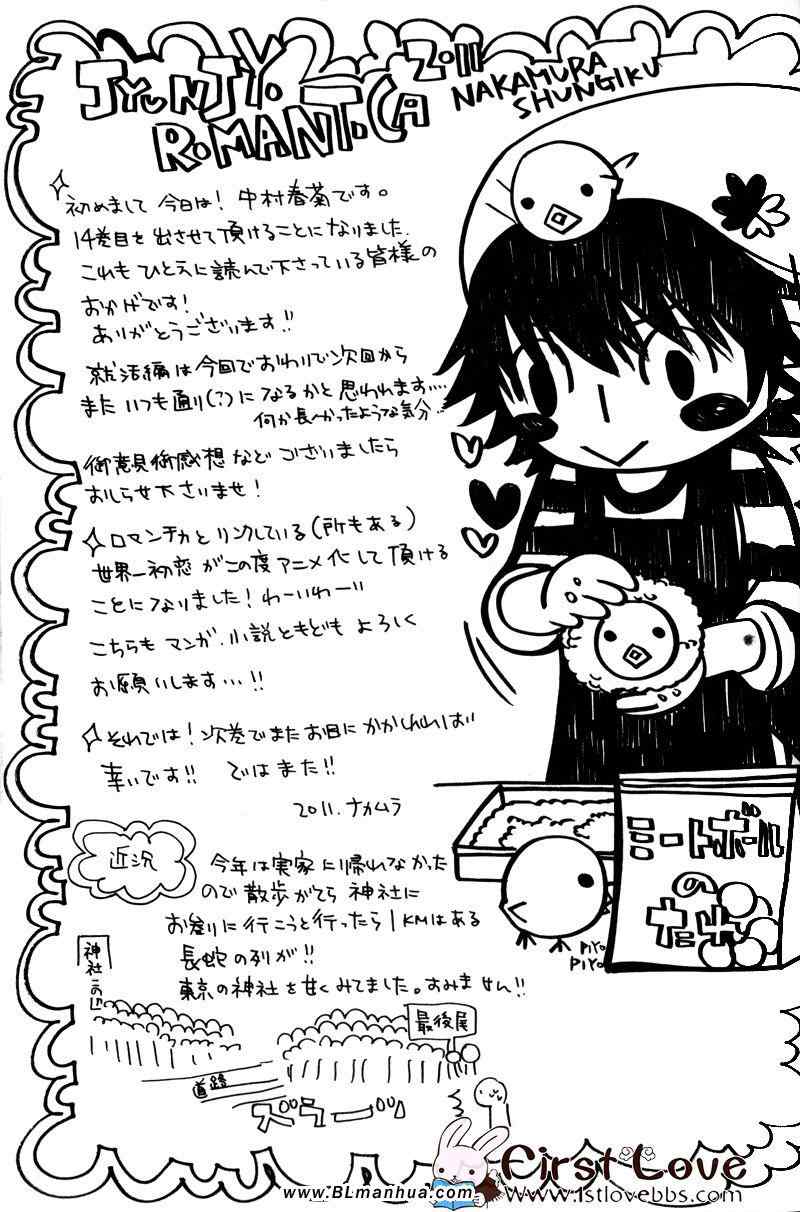 JYUNJYO
ROMANTICA
2011
NAKAMURA
SHUNGIKU
初めまして今日は！中村春菊です。
14巻目を出させて頂けることになりました.
これもひとえに読んで下さっている皆様の
おかげです！
ありがとうございます!!
就活編は今回でおわりで次回から
またいつも通り(?)になるかと思われます…
何か長〜かったような気分…
御意見御感想などございましたら
おしらせ下さいませ！
ロマンチカとリンクしている(所もある)
世界一初恋がこの度アニメ化して頂ける
ことになりました！わーいわーい
こちらもマンガ.小説ともども よろしく
お願いします…!!
それでは！次巻でまたお目にかかれれば
幸いです!! ではまた!!
2011.ナカムラ
近況
今年は実家に帰れなかった
ので散歩がてら神社に
お参りに行こうと行ったら1KMはある
長蛇の列が!!
東京の神社を甘くみてました。すみません!!
神社
道路
最後尾
ズラーッ
ミートボール
の
PIYO
PIYO
First Love
www.BLmanhua.com
www.1stlovebbs.com